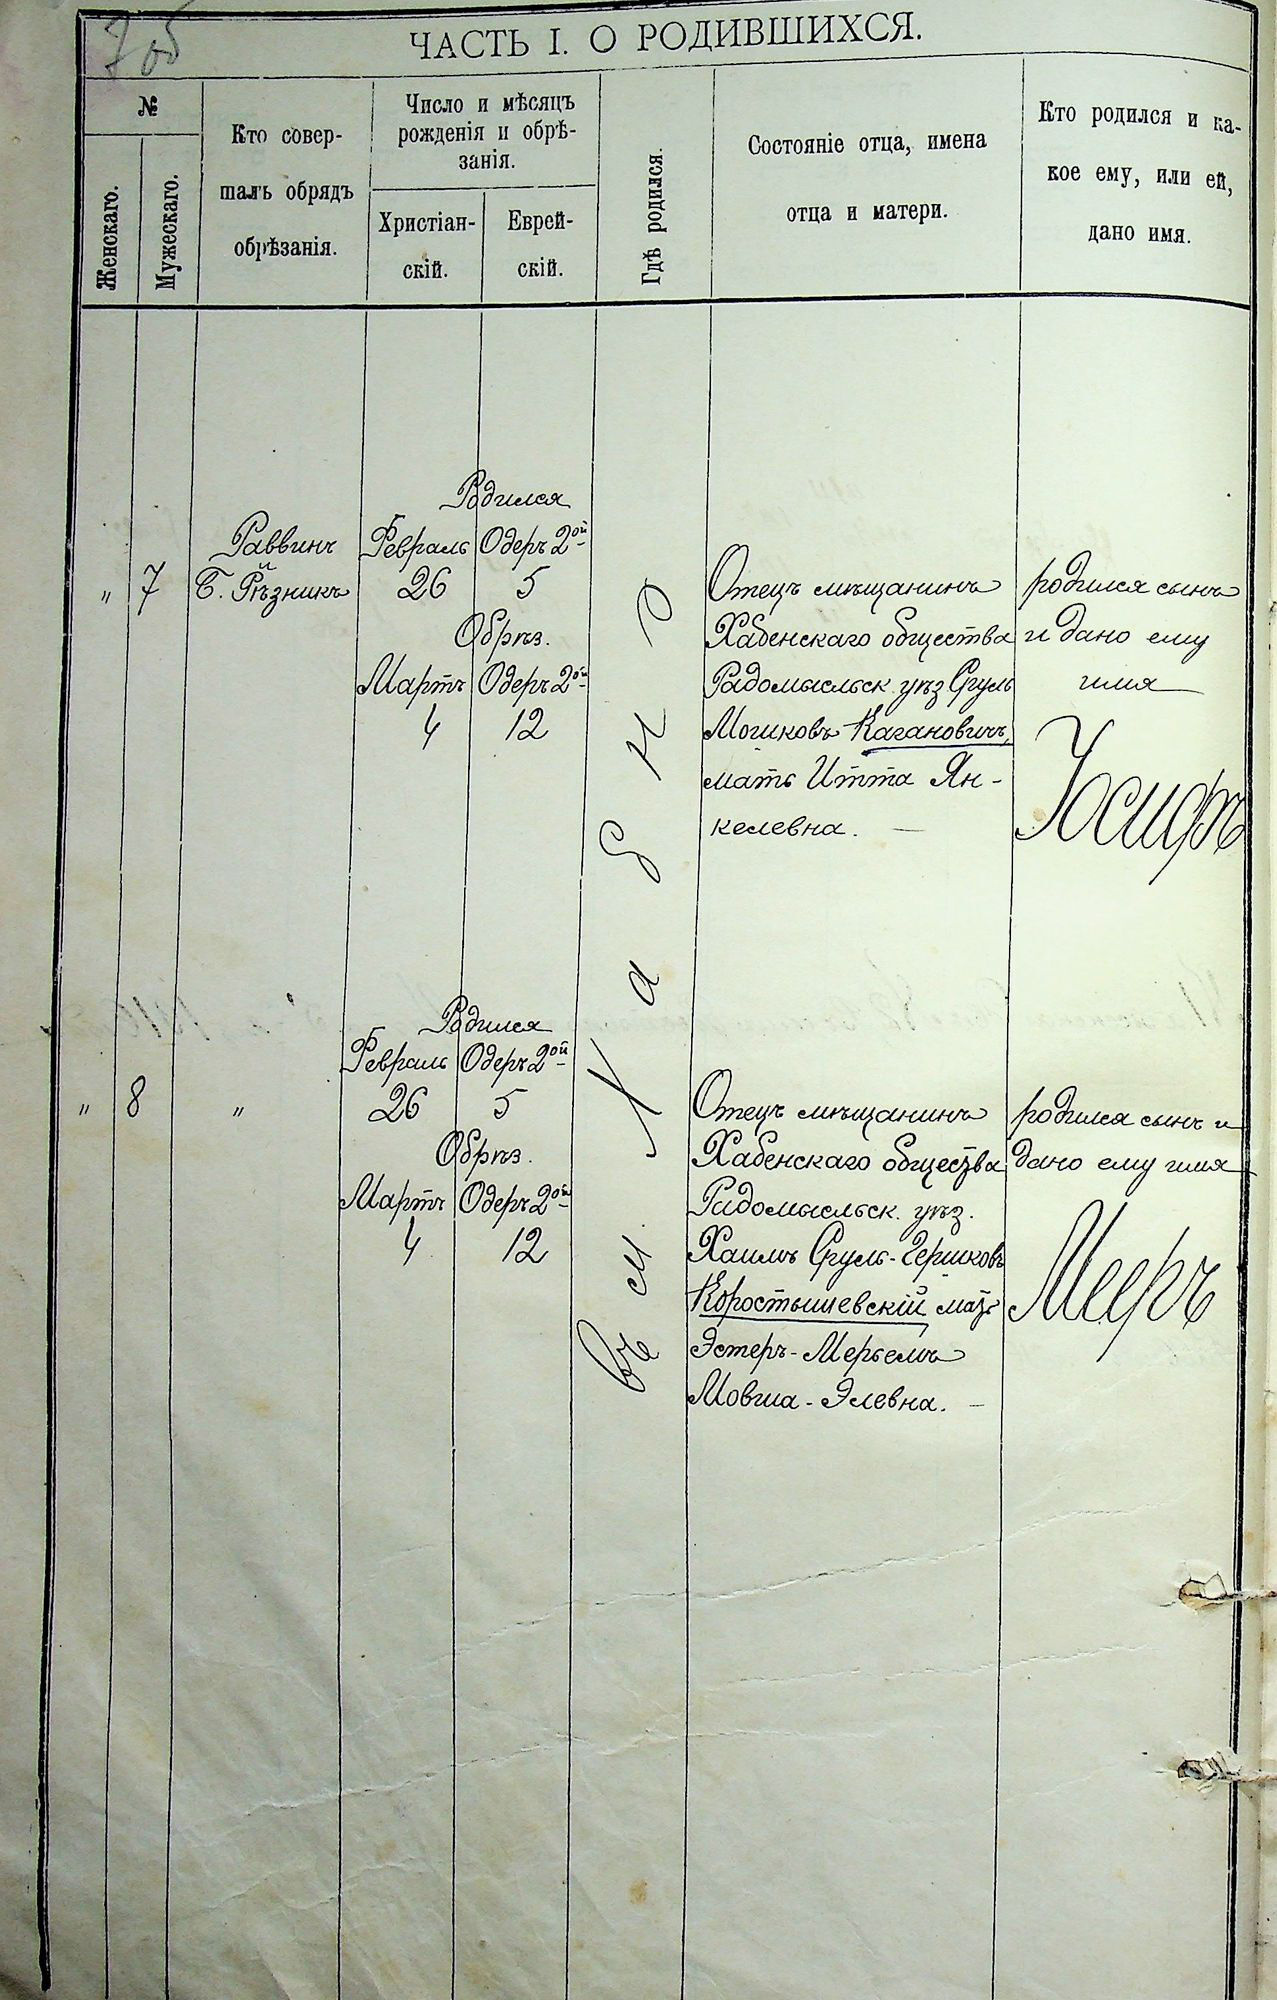 7об
ЧАСТЬ I. О РОДИВШИХСЯ.
№
Женскаго.
Мужескаго.
Кто совер-
шалъ обрядъ
обрѣзанія.
Число и мѣсяцъ
рожденія и обрѣ-
занія.
Христіан-
скій.
Еврей-
скій.
Гдѣ родился.
Состояніе отца, имена
отца и матери.
Кто родился и ка-
кое ему, или ей,
дано имя.
Родился
Раввинъ Февраль Одеръ 2ой
" 7 Б. Рѣзникъ 26 5
Обрѣз.
Мартъ Одеръ 2ой
4 12
Отецъ мѣщанинъ
Хабенскаго общества
Радомысльск. уѣз Сруль
Мошковъ Кагановичъ,
мать Итта Ян-
келевна. —
родился сынъ
и дано ему
имя
Іосифъ
Въ м. Хабно
Родился
Февраль Одеръ 2ой
" 8 " 26 5
Обрѣз.
Мартъ Одеръ 2ой
4 12
Отецъ мѣщанинъ
Хабенскаго общества
Радомысльск. уѣз.
Хаимъ Сруль-Гершковъ
Коростышевскій мать
Эстеръ-Мерьемъ
Мовша-Элевна. —
родился сынъ и
дано ему имя
Мееръ